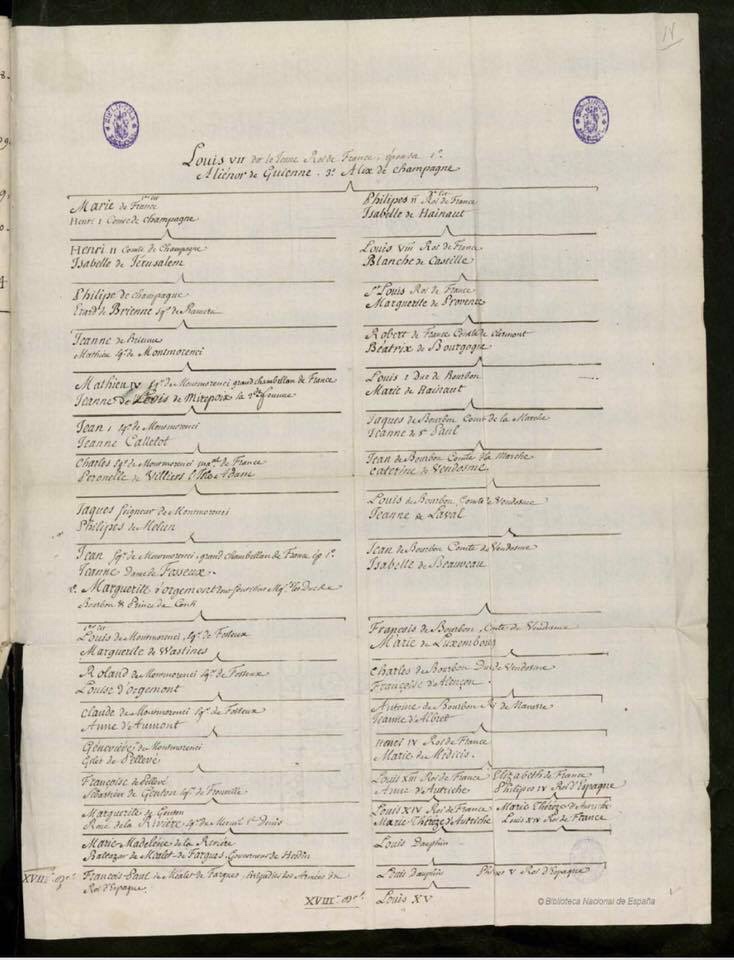 IV
Louis VII dit le Jeune Roi de France, épousa 1º.
Aliénor de Guienne. 3º Alix de Champagne
1er lit
Marie de France
Henri I Comte de Champagne
Henri II Comte de Champagne
Isabelle de Jérusalem
Philipe de Champagne
Erard de Brienne sgr. de Rameru
Jeanne de Brienne
Mathieu sgr. de Montmorenci
Mathieu IV sgr. de Montmorenci grand chambellan de France
Jeanne de Levis de Mirepoix la 2de femme
Jean I sgr. de Montmorenci
Jeanne Calletot
Charles sgr. de Montmorenci maal. de France
Peronelle de Villiers l'Isle Adam
Jaques seigneur de Montmorenci
Philipes de Melun
Jean sgr. de Montmorenci, grand chambellan de France ep 1º.
Jeanne Dame de Fosseux.
2º. Marguerite d'orgemont
Bourbon & Prince de Conti
1er lit
Louis de Montmorenci, sgr. de Fosseux
Marguerite de Wastines
Roland de Montmorenci sgr. de Fosseux
Louise d'orgemont
Claude de Montmorenci sgr. de Fosseux
Anne d'Aumont
Géneviève de Montmorenci
Giles de Pellevé
Françoise de Pellevé
Sébastien de Genton sgr. de
Marguerite de Genton
René de la Rivière sgr. de
Marie Madeleine de la Rivière
Baltezar de Mealet de Fargues Gouverneur de Hedin
XVIIe. degré
François Paul de Mealet de Fargues, Brigadier des Armées du
Roi d'Espagne
3e lit
Philipes II Roi de France
Isabelle de Hainaut
Louis VIII Roi de France
Blanche de Castille
St. Louis Roi de France
Marguerite de Provence
Robert de France Comte de Clermont
Béatrix de Bourgogne
Louis I Duc de Bourbon
Marie de Hainaut
Jaques de Bourbon Comte de la Marche
Jeanne de St. Paul
Jean de Bourbon Comte de la Marche
Caterine de Vendosme
Louis de Bourbon, Comte de Vendosme
Jeanne de Laval
Jean de Bourbon Comte de Vendosme
Isabelle de Beauveau
François de Bourbon, Comte de Vendosme
Marie de Luxembourg
Charles de Bourbon Duc de Vendosme
Françoise d'Alençon
Antoine de Bourbon Roi de Navarre
Jeanne d'Albret
Henri IV Roi de France
Marie de Médicis.
Louis XIII Roi de France
Anne d'Autriche
Elizabeth de France
Philipes IV Roi d'Espagne
Louis XIV Roi de France
Marie Thérèze d'Autriche
Marie Thérèze d'Autriche
Louis XIV Roi de France
Louis Dauphin
Louis Dauphin
Philipes V Roi d'Espagne
XVIIIe. degré.
Louis XV
© Biblioteca Nacional de España